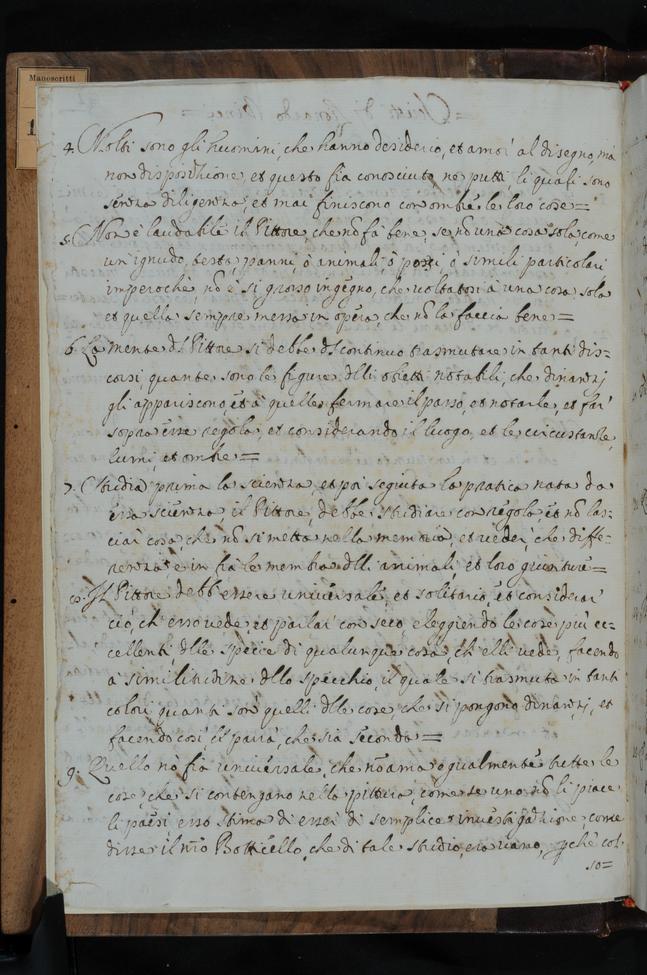 Manoscritti
1
4. Molti sono gli huomini, che hanno desiderio, et amor' al disegno, mà
non dispositione, et questo fia conosciuto ne putti, li quali sono
senza diligenza, et mai finiscono con ombre le loro cose=
5. Non è laudabile il Pittore, che nō fà bene, se nō una cosa sola, come
un'ignudo, testa, panni, ò animali, ò paesi ò simili particolari
imperochè, nō è si grosso ingegno, che voltatosi à una cosa sola
et quella sempre messa in opera, che nō la faccia bene=
6. La mente dl Pittore si debbe dl continuo trasmutare in tanti dis-
corsi quante sono le figure dlli obietti notabili, che dinanzj
gli appariscono, et à quelle fermare il passo, et notarle, et far'
sopra esse regola, et considerando il luogo, et le circustantie,
lumi, et ombre=
7. Studia prima la scienza, et poi seguita la pratica nata da
essa scienza il Pittore, debbe studiare con regola, et nō las-
ciar cosa, che nō si metta nella memoria, et veder, che diffe-
renza è in frà le membra dlli animali, et loro giunture=
8. Il Pittore debb'essere universale, et solitario, et considerar'
ciò, ch'esso vede et parlar' con seco, eleggiendo le cose più ec-
cellenti dlle specie di qualunque cosa, ch'elli vede, facendo
à similitudine dllo specchio, il quale si trasmuta in tanti
colori, quanti son' quelli dlle cose, che si pongono dinanzj, et
facendo cosi, li parrà, che sia seconda=
9. Quello nō fia universale, che nō ama egualmente tutte le
cose, che si contengano nella pittura, come se uno nō li piace
li paesi esso stima di esser di semplice investigatione, come
disse il nrō Botticello, che di tale studio, era vano, pchè col
so=